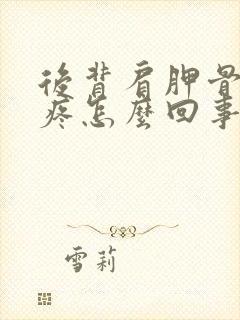 後背肩胛骨
疼怎麼回事
雪莉